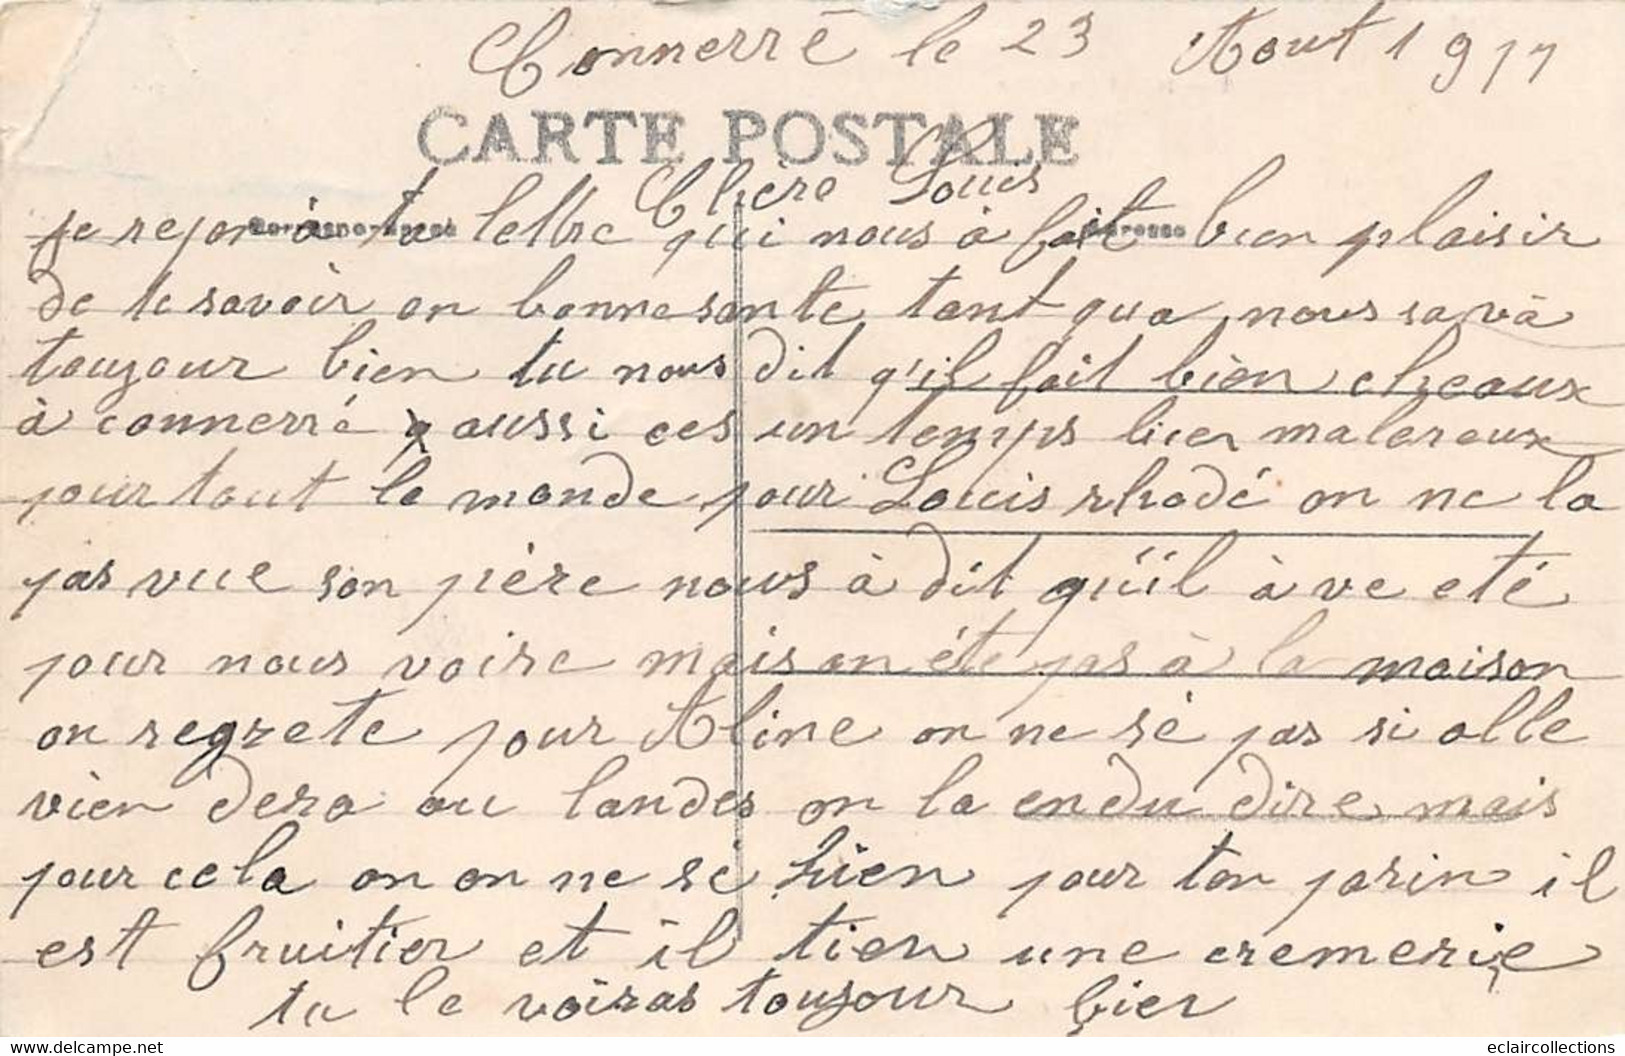 Connerré le 23 Aout 1911
CARTE POSTALE
Chère Louis
Correspondance Adresse
je repon à ta lettre qui nous à fait bien plaisir
de te savoir on bonne sante tant qua nous sa và
toujour bien tu nous dit q'il fait bien cheaux
à connerré aussi ces un temps bien malereux
pour tout le monde pour Louis rhodé on ne la
pas vue son pière nous à dit qu'il à ve eté
pour nous voire mais on éte pas à la maison
on regrete pour Aline on ne sé pas si elle
vien dera au landes on la endu dire mais
pour cela on on ne sé hien pour ton parin il
est fruitier et il tien une cremerie
tu le voiras toujour bien
delcampe.net
eclaircollections